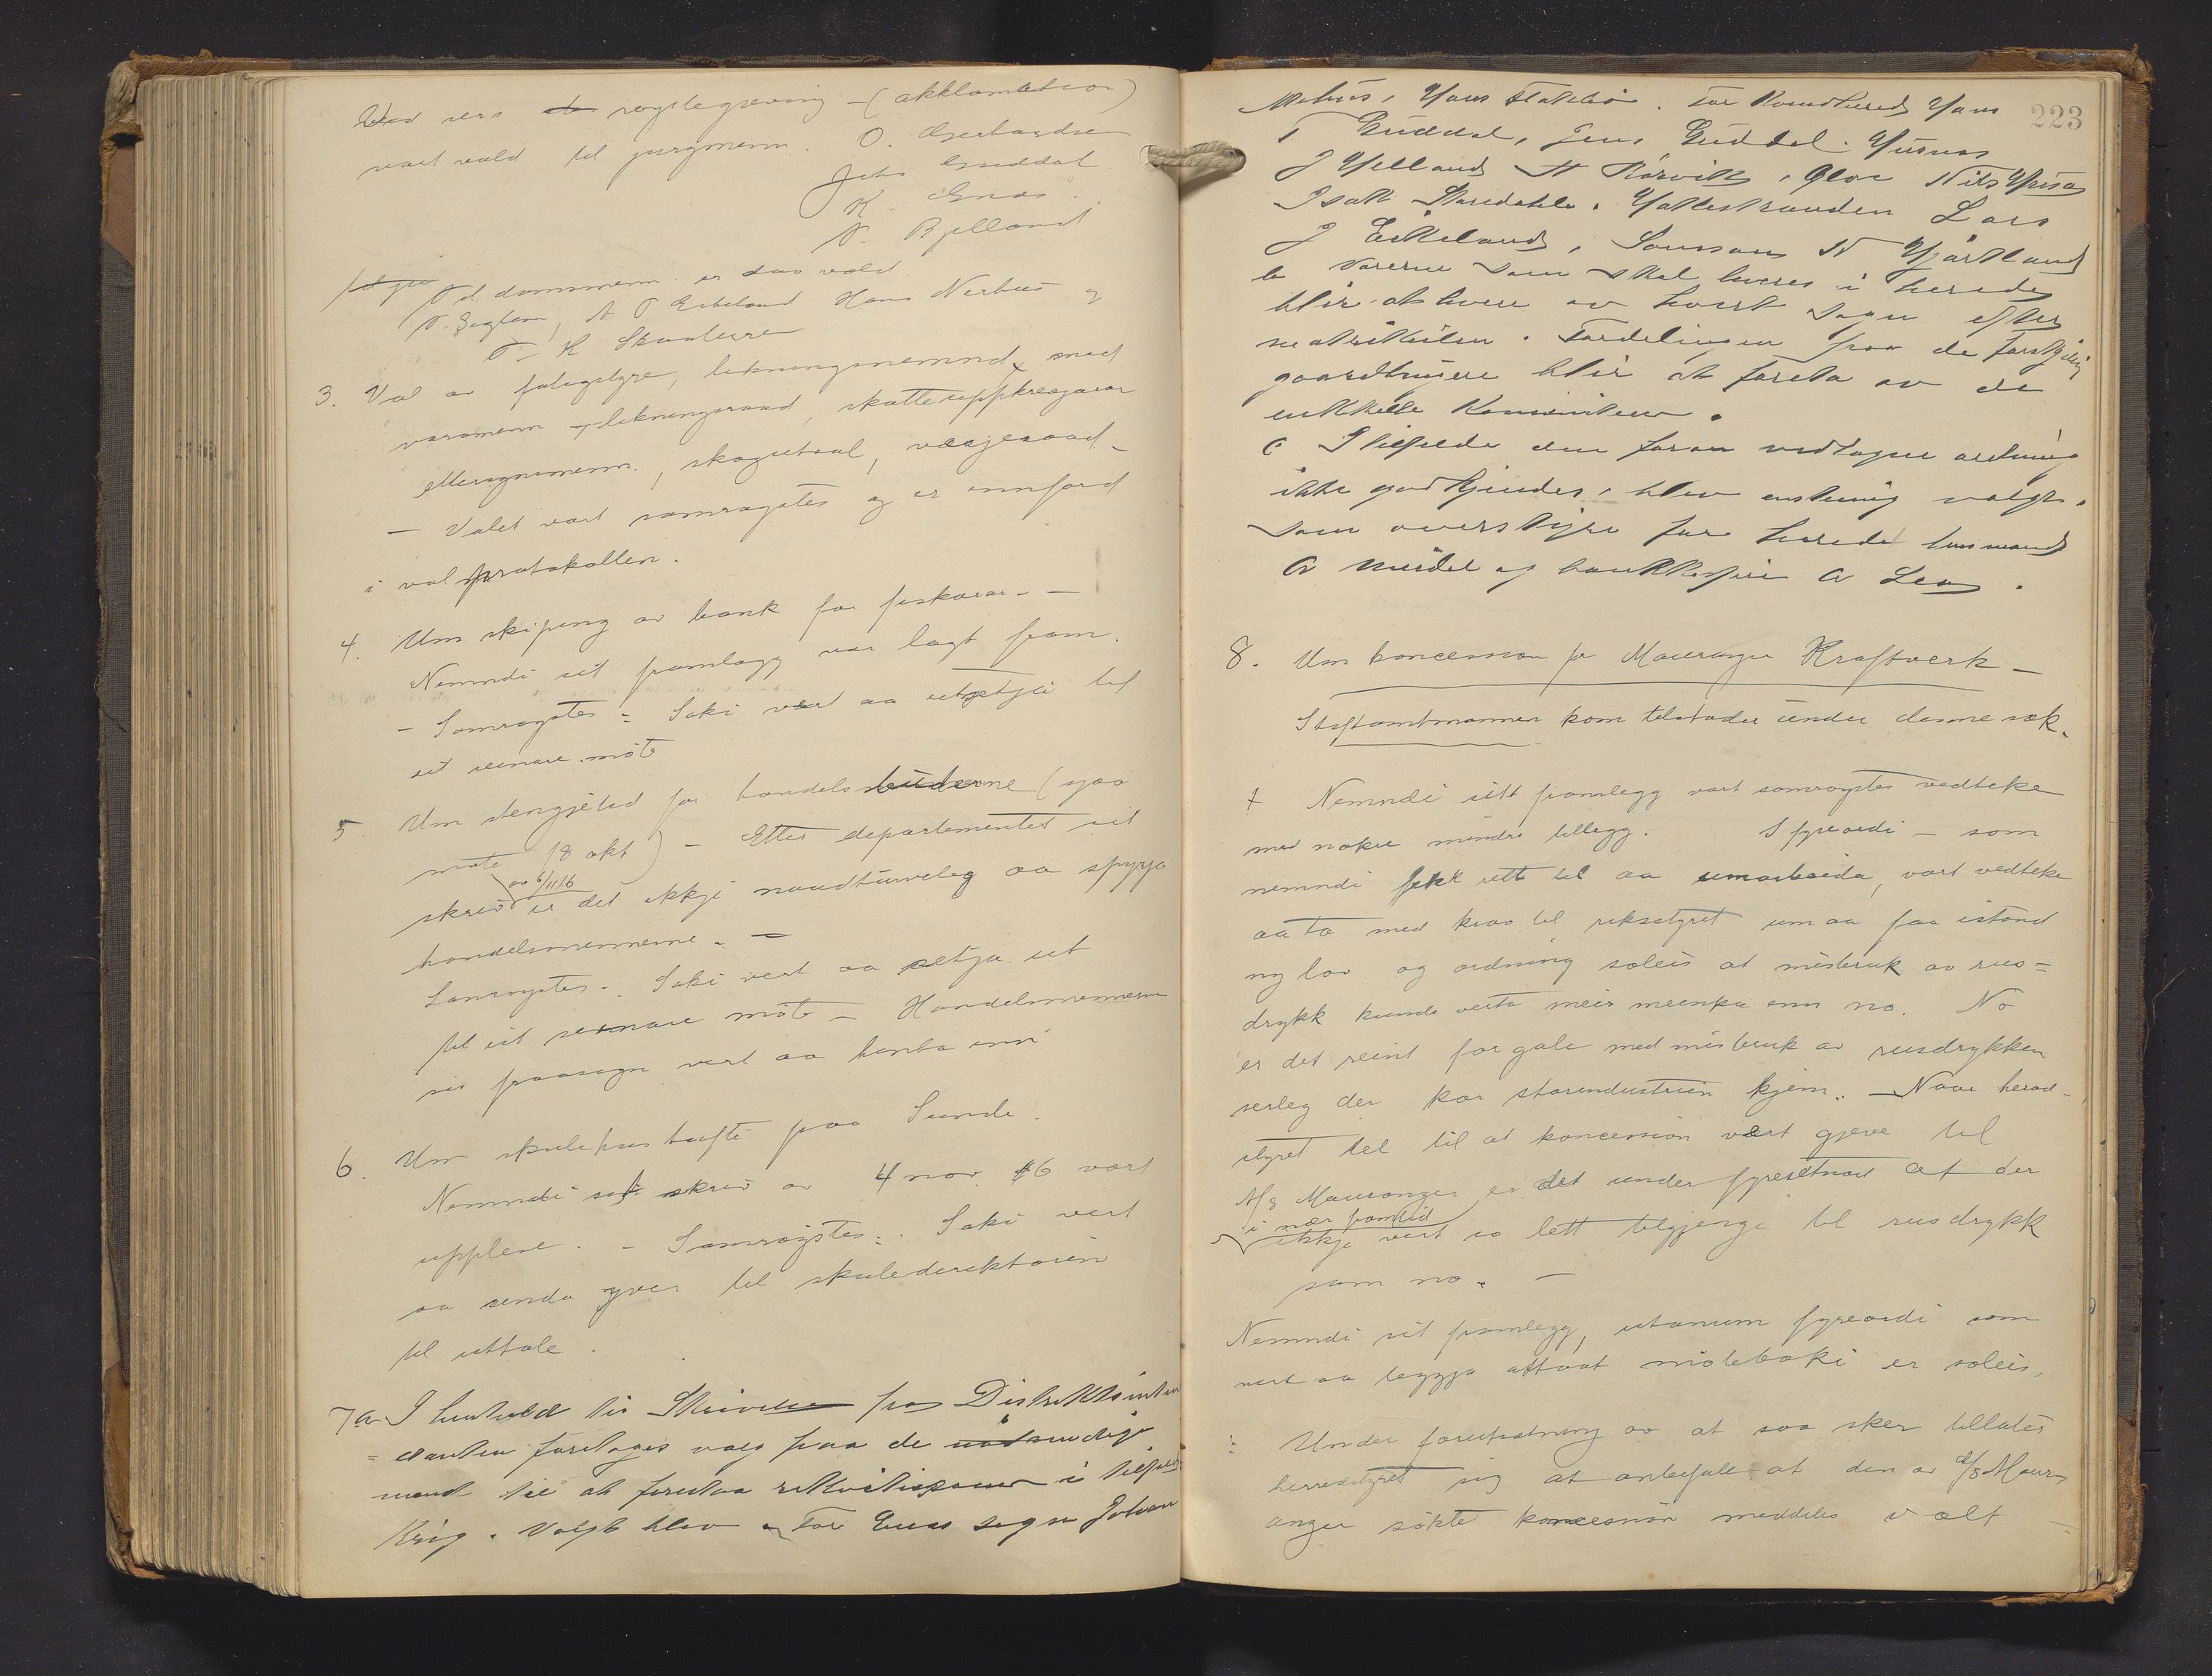 Ved røystegreving - (akklamation)
vart vald til jurymenn. O. Gerhardsen
Jets Guddal
K. Enæs
N. Bjelland
Til domsmenn er vald
N. Seglem, A T Eikeland Hans Nerhus og
T H Skaaluren
3. Val av fatigstyre, likningsnemnd med
varamenn, likningsraad, skatteuppkrevjarar
, skogutval, verjeraad
- Valet vart samrøystes og er innførd
i valprotokollen.
4. Um skiping av bank for fiskarar. -
Nemndi sit framlegg var lagt fram.
- Samrøystes: Saki vert aa utsetja til
eit seinare møte
5 Um stengjetid for handelsbuderne (sjaa
møte 18 okt) - Etter departementet sit
skriv av 6/11 16 er det ikkje naudturveleg aa spyrja
handelsmennerne. -
Samrøystes. Saki vert aa setja ut
til eit seinare møte - Handelsmennerne
si fraasegn vert aa henta inn
6. Um skulehustufti paa Sunde.
Nemndi sit skriv av 4 nov. 16 vart
upplese. - Samrøystes: Saki vert
aa senda yver til skuledirektøren
til uttale.
7 a I henhold til Skrivelse fra Distriktsinten
= danten foretages valg paa de nødvendige
mænd til at foretaa rekvisisjoner i tilfælde
Krig. Valgt blev. For Enes sogn Johan
223
Nehus, Hans Flatebø. For Kvindherred Hans
T Guddal, Jens Guddal. Husnes
J Hjelland N Rørvik, Ølve Nils Husa
Isak Skaredahle. Halsstranden Lars
J Eikeland, Samsons N Hjartland
b Varerne som skal leveres i herredet
blir at levere av hvert sogn efter
matrikulen. Fordelingen paa de forskjellige
gaardbrugere blir at foreta av de
enkelte Komiteer.
c I tilfælde den foran vedtagne ordning
ikke godkjendes, blev enstemig valgt
som overstyre for herredet lensmand
A Mindel og bankkasserer A Lea.
8. Um koncession for Mauranger Kraftverk -
Stiftamtmannen kom tilstades under denne sak.
Nemndi sitt framlegg vart samrøystes vedteke
med nokre mindre tillegg. I fyreordi - som
nemndi fekk rett til aa umarbeida, vart vedteke
aa ta med krav til riksstyret um aa faa istand
ny lov og ordning soleis at misbruk av rus=
drykk kunde verta meir meinka enn no. No
er det reint for gale med misbruk av rusdrykken
serleg der kor storindustrien kjem. - Naar herad-
styret tel til at koncession vert gjeve til
A/S Mauranger er det under fyresetnad at der
i nær framtid
ikkje vert so lett tilgjenge til rusdrykk
som no. -
Nemndi sit framlegg, utanum fyreordi som
vert aa leggja attaat møteboki er soleis,
: Under forutsætning av at saa sker tillater
herredstyret sig at anbefale at den av A/S Maur-
anger søkte koncession meddeles i alt -